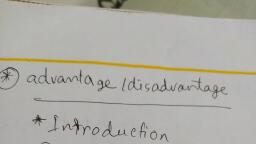 * advantage / disadvantage
* Introduction